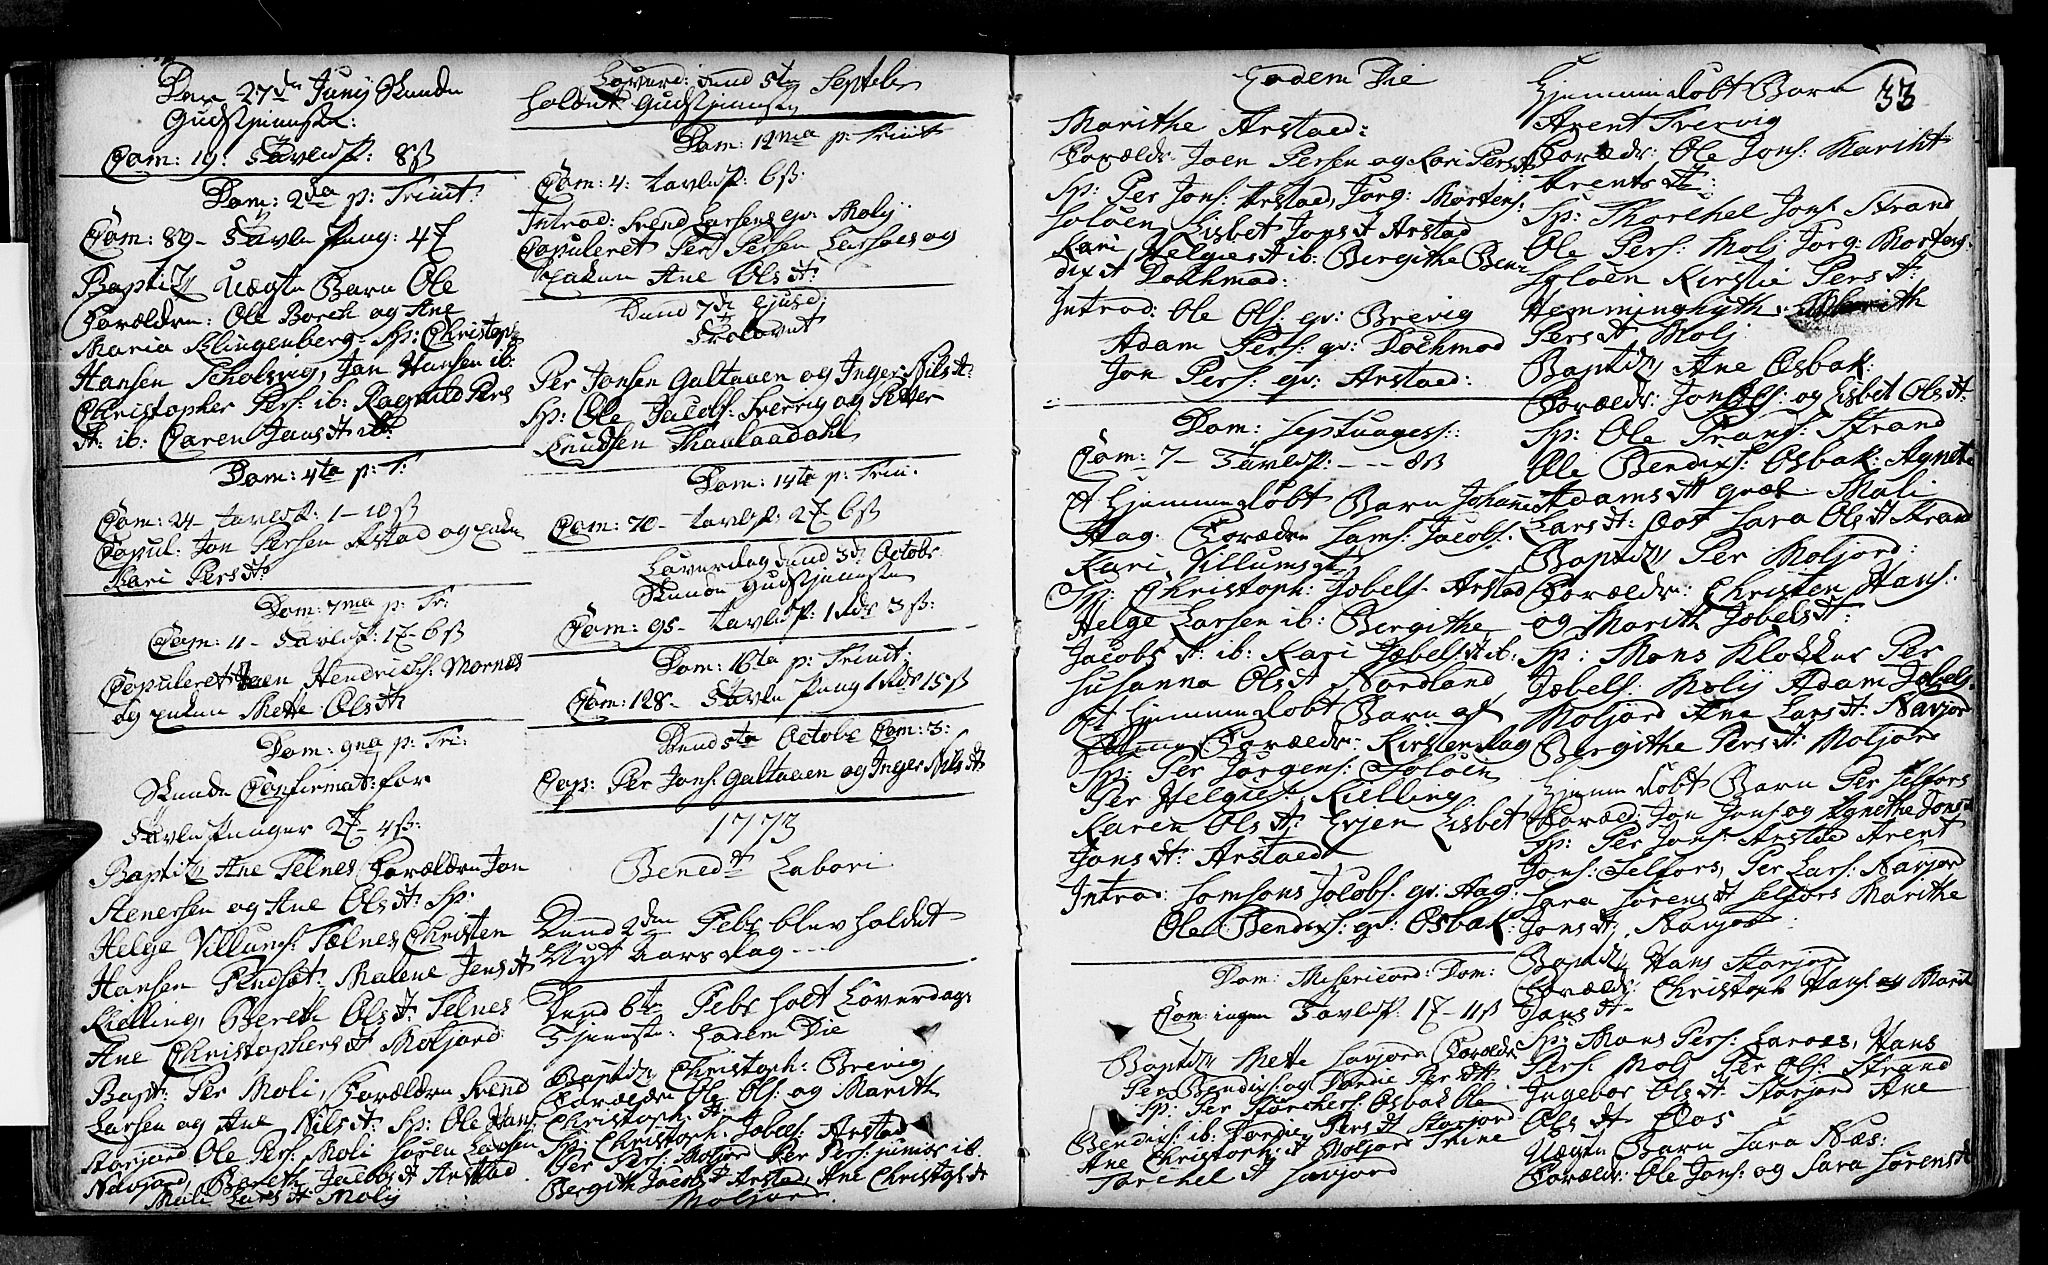 Dax 27de Junij Skeede
Gudstjeniste:
Com: 19: Tavlesp: 8ß
Dom: 2da p: Trinit:
Com: 89 - Tavle Pung: 4
Baptiz Uægte Barn Ole
Forældre: Ole Boreth og Ane
Maria Klingenberg. Sp: Christoph
Hansen Scholvig, Jan Hansen ib.
Christopher Pers: ib: Ragnild Pers
dt: ib: Caren Jans dt ib:
Dom: 4ta p: T:
Com: 24 - Tavlesp: 1 - 10ß
Copul: Jon Persen Astad og
Kari Persdt
Dom: 7ma p: Tr:
Com: 11 - Tavlesp: 17 - 6ß
Copuleret Hendrichs: Mornes
og Mette Olsdt:
Dom: 9na p: Tri:
Skeede Confirmat: for
Tavle Punger 2 - 4ß:
Baptiz Ane Telnes Forældre Jon
Stenersen og Ane Olsdt: Sp:
Helge Villums: Telnes Christen
Hansen Malene Jensdt
Kielling, Bereth Olsdt: Telnes
Ane Christophersdt Moljord:
Bapt: Per Moli, Forældre Svend
Larsen og Ane Nilsdt: Sp: Ole Hans:
Storjord Ole Pers: Moli Søren Larsen
Navjord, Bereth Jacobsdt Arstad
Mali Larsdt Molij
Løverd: dend 5te Septbr
holdet Gudstjeniste
Dom: 12ma p: Trinit
Com: 4: Tavlesp: 6ß:
Introd: Svend Larsens qv: Molij
Copuleret Pers Persen Larsoes og
Ane Olsdt:
Dend 7de ejusd:
Trolovet
Per Jonsen Galtaaen og Inger Nilsdt:
Sp: Ole Jacobs: Svervig og Petter
Knudsen Thaulaadahl
Dom: 14ta p: Trin:
Com: 70 - Tavlsp: 2 6ß
Løverdag dend 3de Octobr
Skeede Gudstjeniste
Com: 95 - Tavlesp: 1 Rdr 3ß:
Dom: 16ta p: Trinit:
Com: 128 - Tavle Pung 1 Rdr 15ß
Dend Octobr Com: 3:
Cop: Per Jons: Galtaaen og Inger Nilsdt
1773
Bened: Labori
Dend 2den Febr blev holdet
Nyt Aarsdag - - -
Dend 6te Febr holt Løverdags
Tjeneste: Eodem Die
Baptiz Christoph: Brevig
Forældre Ole Ols: og Marith
Christoph: dt
Sp: Christoph: Jobels: Arstad
Per Pers: Moljord Per Pers: junior ib.
Bergith Jacobsdt Arstad, Ane Christophsdt
Moljord
Eodem Die
Marithe Arstad:
Forældr: Joen Persen og Kari Persdt
Sp: Per Jons: Arstad, Jørg: Mortens:
Soløen Lisbet Jonsdt Arstad
Kari Helgiesdt ib: Bergithe Ben-
dixdt Dochmod:
Introd: Ole Ols: qv: Brevig
Adam Pers: qv: Dochmod
Jon Pers: qv: Arstad:
Dom: Septuages:
Com: 7 - Tavlesp: - - 8ß
Et Hjemme døbt Barn Johanne
Hag. Forældre Sams: Jacobs:
Kari Villumsdt
Sp: Christoph: Jobels: Arstad
Helge Larsen ib: Bergithe
Jacobsdt: ib: Kari Jobelsdt ib:
Susanna Olsdt Nordland
Et Hjemme døbt Barn af
Forældr: Kirsten Hag
Sp: Per Jørgens: Soløen
Per Helgies: Kielling.
Karen Olsdt: Evjen Lisbet
Jonsdt: Arstad
Introd: Samsons Jacobs: qv: Hag:
Ole Bendixs: qv: Osbak:
Dom: Misericord: Dom:
Com: ingen Tavlesp: 17 - 11ß
Baptiz Mette Savjord Forældr
Per Bendixs: og Dordie Persdt
Sp: Per Storchers: Osbak Ole
Bendixs: ib: Dordie Persdt Storjord
Ane Christoph: dt Moljord Trine
Torcheldt Savjord
33
Hjemme døbt Barn
Arent Svervig
Forældr: Ole Jons: Marith
Arentsdt:
Sp: Thorchel Jons: Strand
Ole Pers: Molj Jørg: Mortens:
Soløen Kirstie Persdt:
Hemminghyth: Marith
Persdt Molj
Baptiz Ane Osbak:
Forældr: Jon Ols: og Lisbet Olsdt:
Sp: Ole Frands: Strand
Ole Bendixs: Osbak: Agnete
Adamsdt Moli
Larsdt: Oos Sara Olsdt Strand
Baptiz Per Moljord:
Forældr: Christen Hans:
og Marith Jobelsdt:
Sp: Mons Klokker Per
Jobels: Molij Adam Jobels:
Moljord Ane Larsdt: Navjor
Bergithe Persdt: Moljord
Hjemme døbt Barn Per Selfors
Foræld: Jon Jons: og Agnethe Jonsd
Sp: Per Jons: Arstad Arent
Jons: Selfors, Per Lars: Navjord
Sara Sørensdt Selfors Marithe
Jonsdt. Navjor
Baptiz Hans Storjord
Forældr: Christoph Hans: og Marit
Jansdt -
Sp: Mons Pers: Larsoes, Hans
Pers: Molj Per Ols: Strand
Ingebor Olsdt: Storjord Ane
Olsdt Oos
Uægte Barn Sara Næs:
Forældr: Ole Jons: og Sara Sørensdt